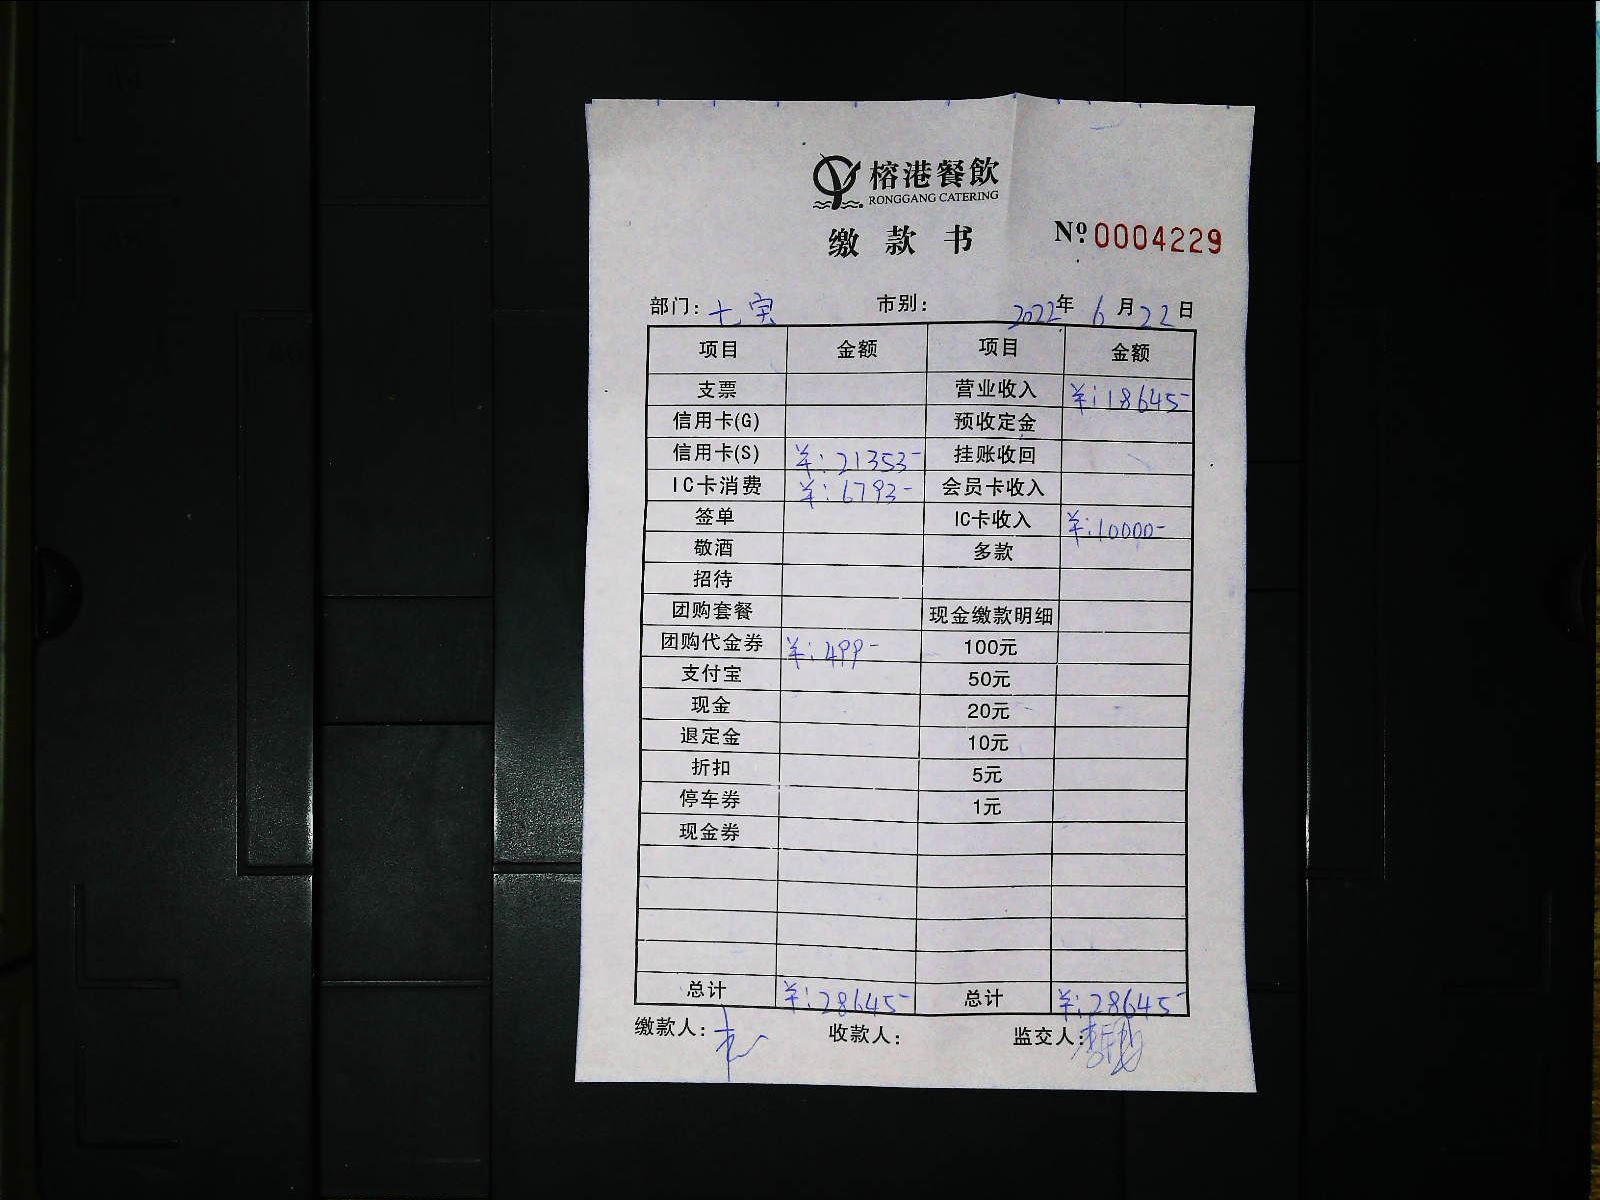 榕港餐飲
RONGGANG CATERING
缴款书 Nº 0004229
部门: 七宝 市别: 2022年 6月22日
项目 金额 项目 金额
支票 营业收入 ¥:18645-
信用卡(G) 预收定金
信用卡(S) ¥:21353- 挂账收回
IC卡消费 ¥:6793- 会员卡收入
签单 IC卡收入 ¥:10000-
敬酒 多款
招待
团购套餐 现金缴款明细
团购代金券 ¥:499- 100元
支付宝 50元
现金 20元
退定金 10元
折扣 5元
停车券 1元
现金券
总计 ¥:28645- 总计 ¥:28645-
缴款人: 收款人: 监交人: